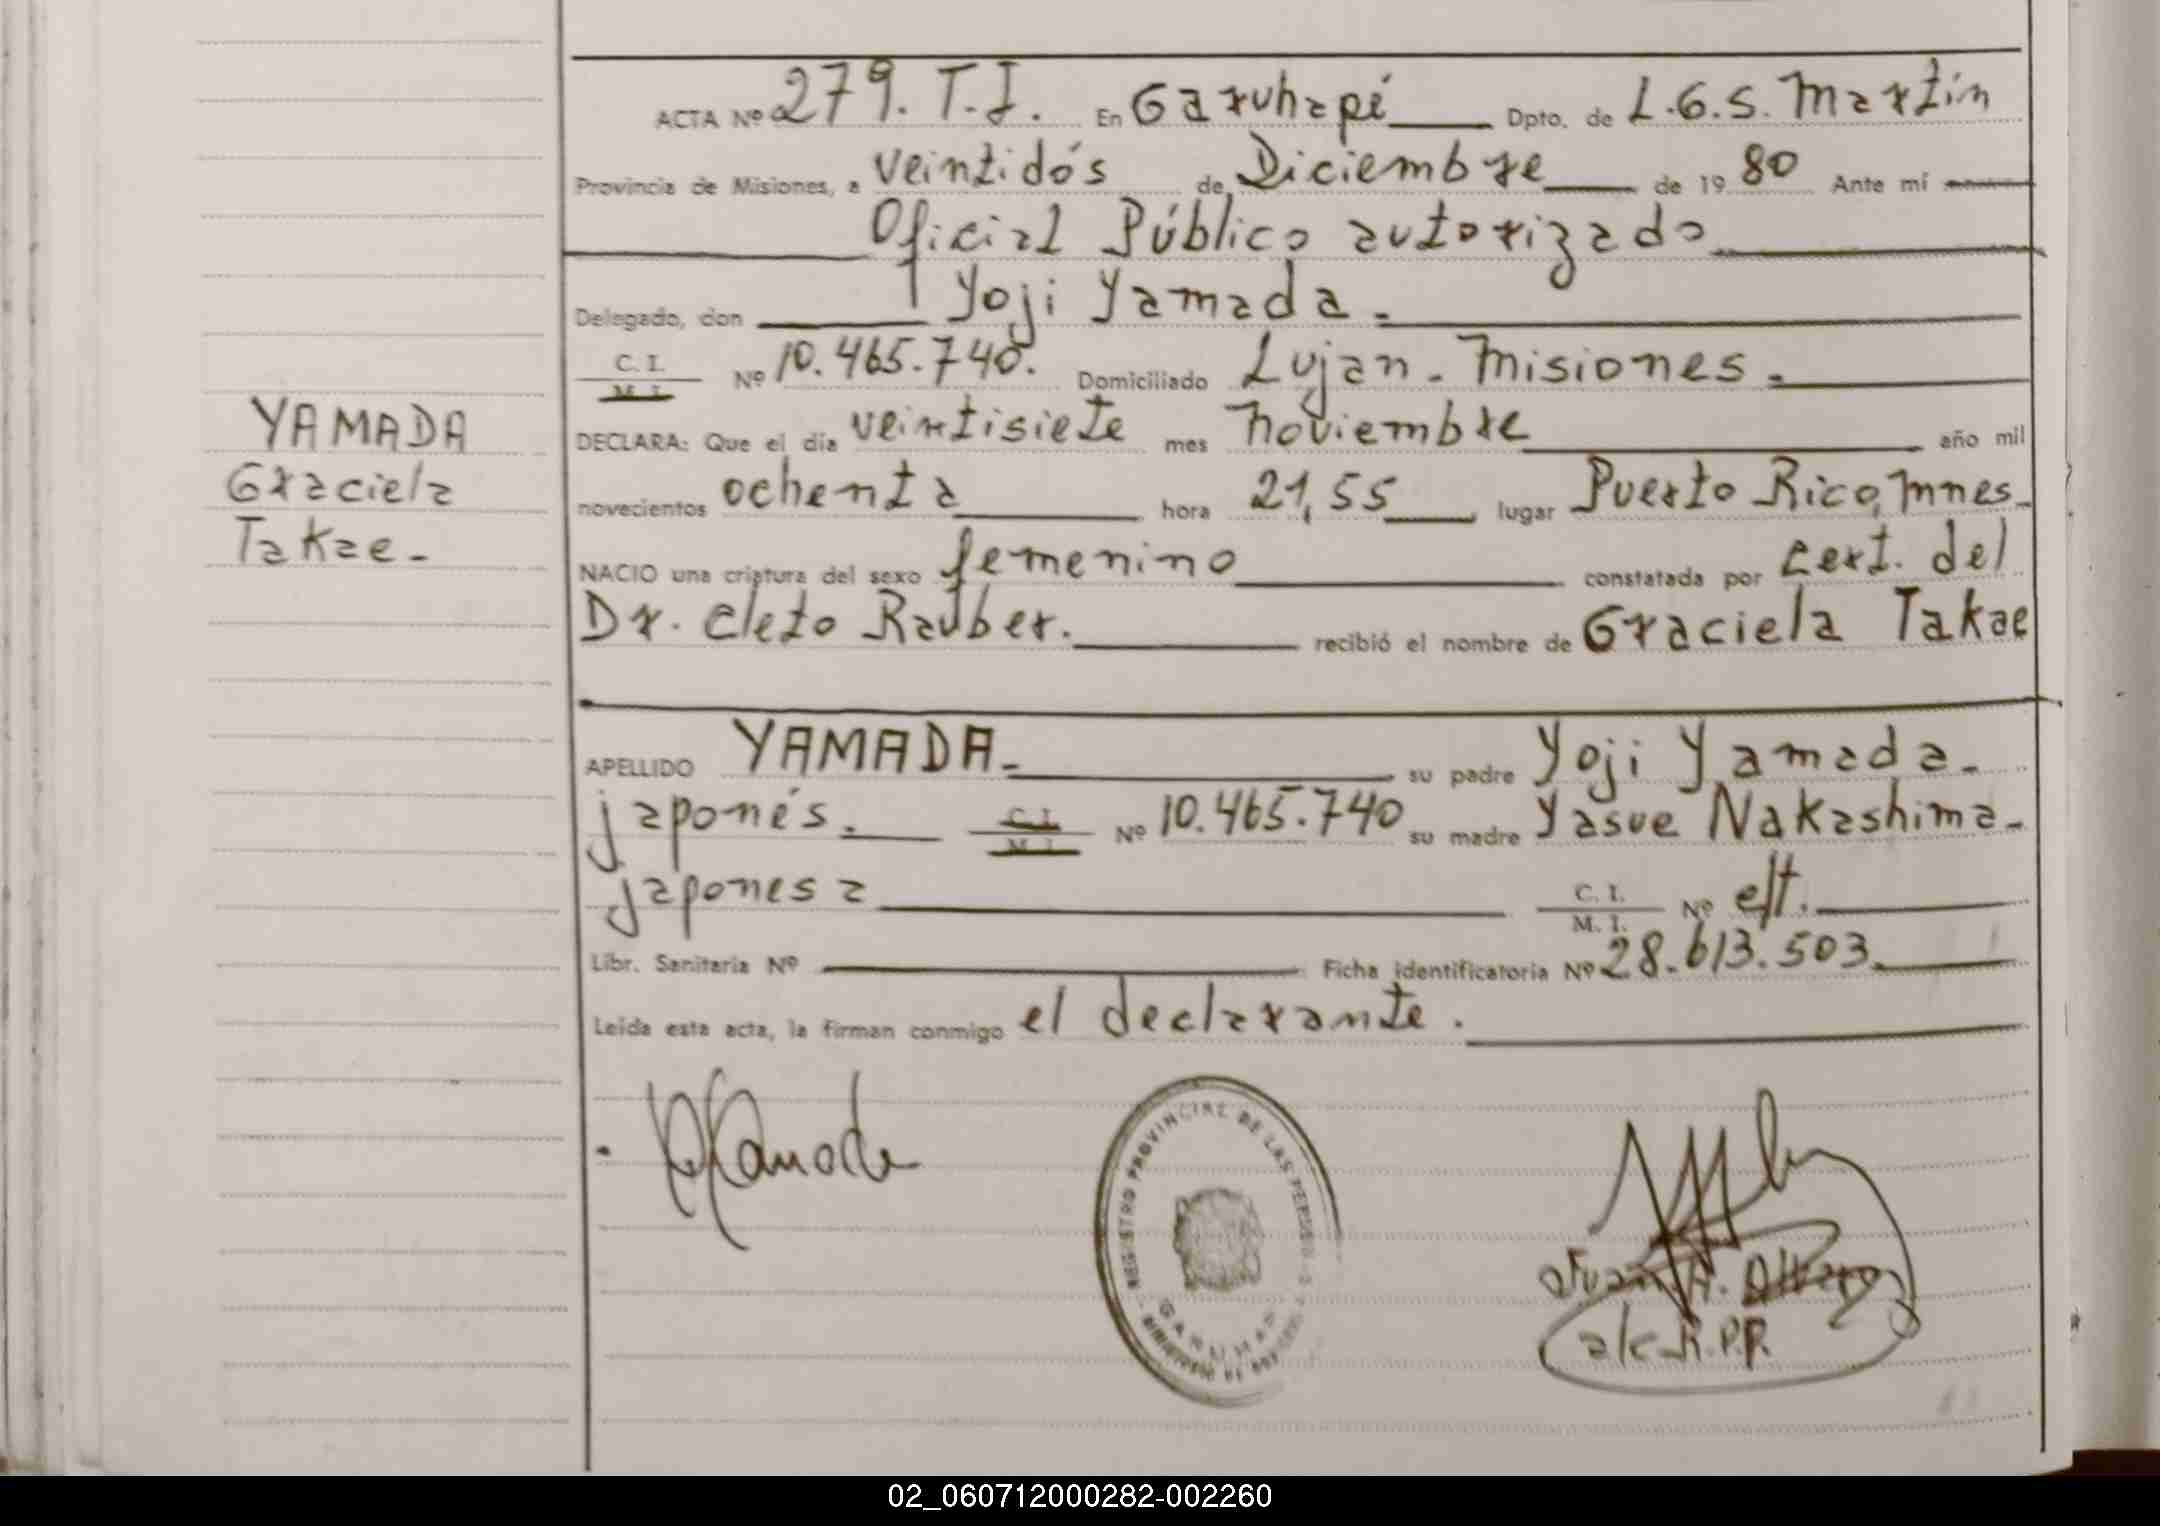 ACTA Nº 279. T.I. En Garuhapé Dpto. de L.G.S. Martín
Provincia de Misiones, a veintidós de Diciembre de 1980 Ante mí
Oficial Público autorizado
Delegado, don Yoji Yamada.
C. I. M. I. Nº 10.465.740. Domiciliado Lujan - Misiones.
DECLARA: Que el día veintisiete mes noviembre año mil
novecientos ochenta hora 21,55 lugar Puerto Rico, Mnes.
NACIO una criatura del sexo femenino constatada por Cert. del
Dr. Cleto Rauber. recibió el nombre de Graciela Takae
YAMADA
Graciela
Takae -
APELLIDO YAMADA - su padre Yoji Yamada -
japonés. C. I. M. I. Nº 10.465.740 su madre Yasue Nakashima -
japonesa C. I. M. I. Nº e/t.
Libr. Sanitaria Nº Ficha identificatoria Nº 28.613.503
Leída esta acta, la firman conmigo el declarante.
REGISTRO PROVINCIAL DE LAS PERSONAS
a/c R.P.P.
02_060712000282-002260